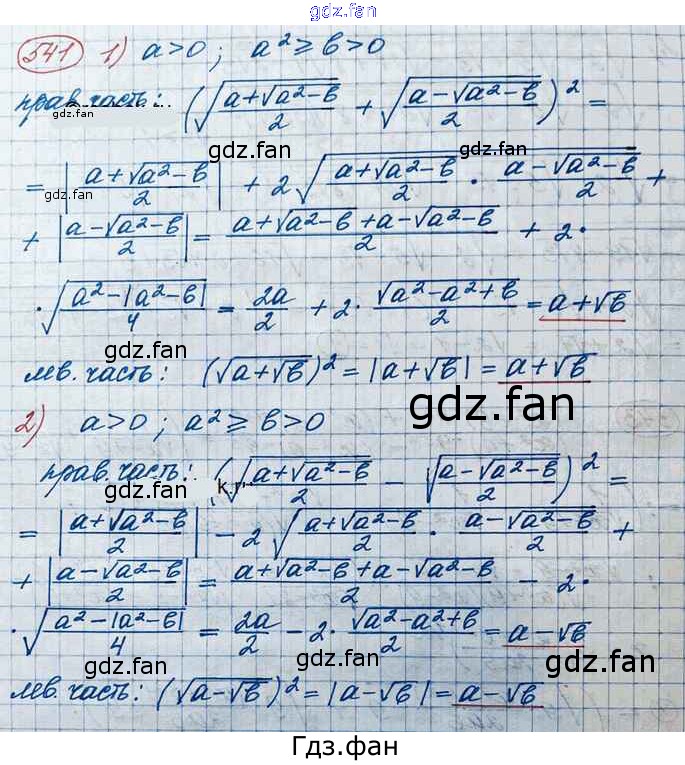 gdz.fan
541 1) a>0; a²≥b>0
прав.часть: (√((a+√(a²-b))/2) + √((a-√(a²-b))/2))² =
gdz.fan
gdz.fan
= |(a+√(a²-b))/2| + 2√((a+√(a²-b))/2 · (a-√(a²-b))/2) +
gdz.fan
+ |(a-√(a²-b))/2| = (a+√(a²-b)+a-√(a²-b))/2 + 2·
gdz.fan
gdz.fan
·√((a²-|a²-b|)/4) = 2a/2 + 2·√(a²-a²+b)/2 = a+√b
gdz.fan
лев.часть: (√(a+√b))² = |a+√b| = a+√b
gdz.fan
2) a>0; a²≥b>0
прав.часть: (√((a+√(a²-b))/2) - √((a-√(a²-b))/2))² =
gdz.fan
= |(a+√(a²-b))/2| - 2√((a+√(a²-b))/2 · (a-√(a²-b))/2) +
gdz.fan
+ |(a-√(a²-b))/2| = (a+√(a²-b)+a-√(a²-b))/2 - 2·
·√((a²-|a²-b|)/4) = 2a/2 - 2·√(a²-a²+b)/2 = a-√b
gdz.fan
gdz.fan
лев.часть: (√(a-√b))² = |a-√b| = a-√b
gdz.fan
Гдз.фан